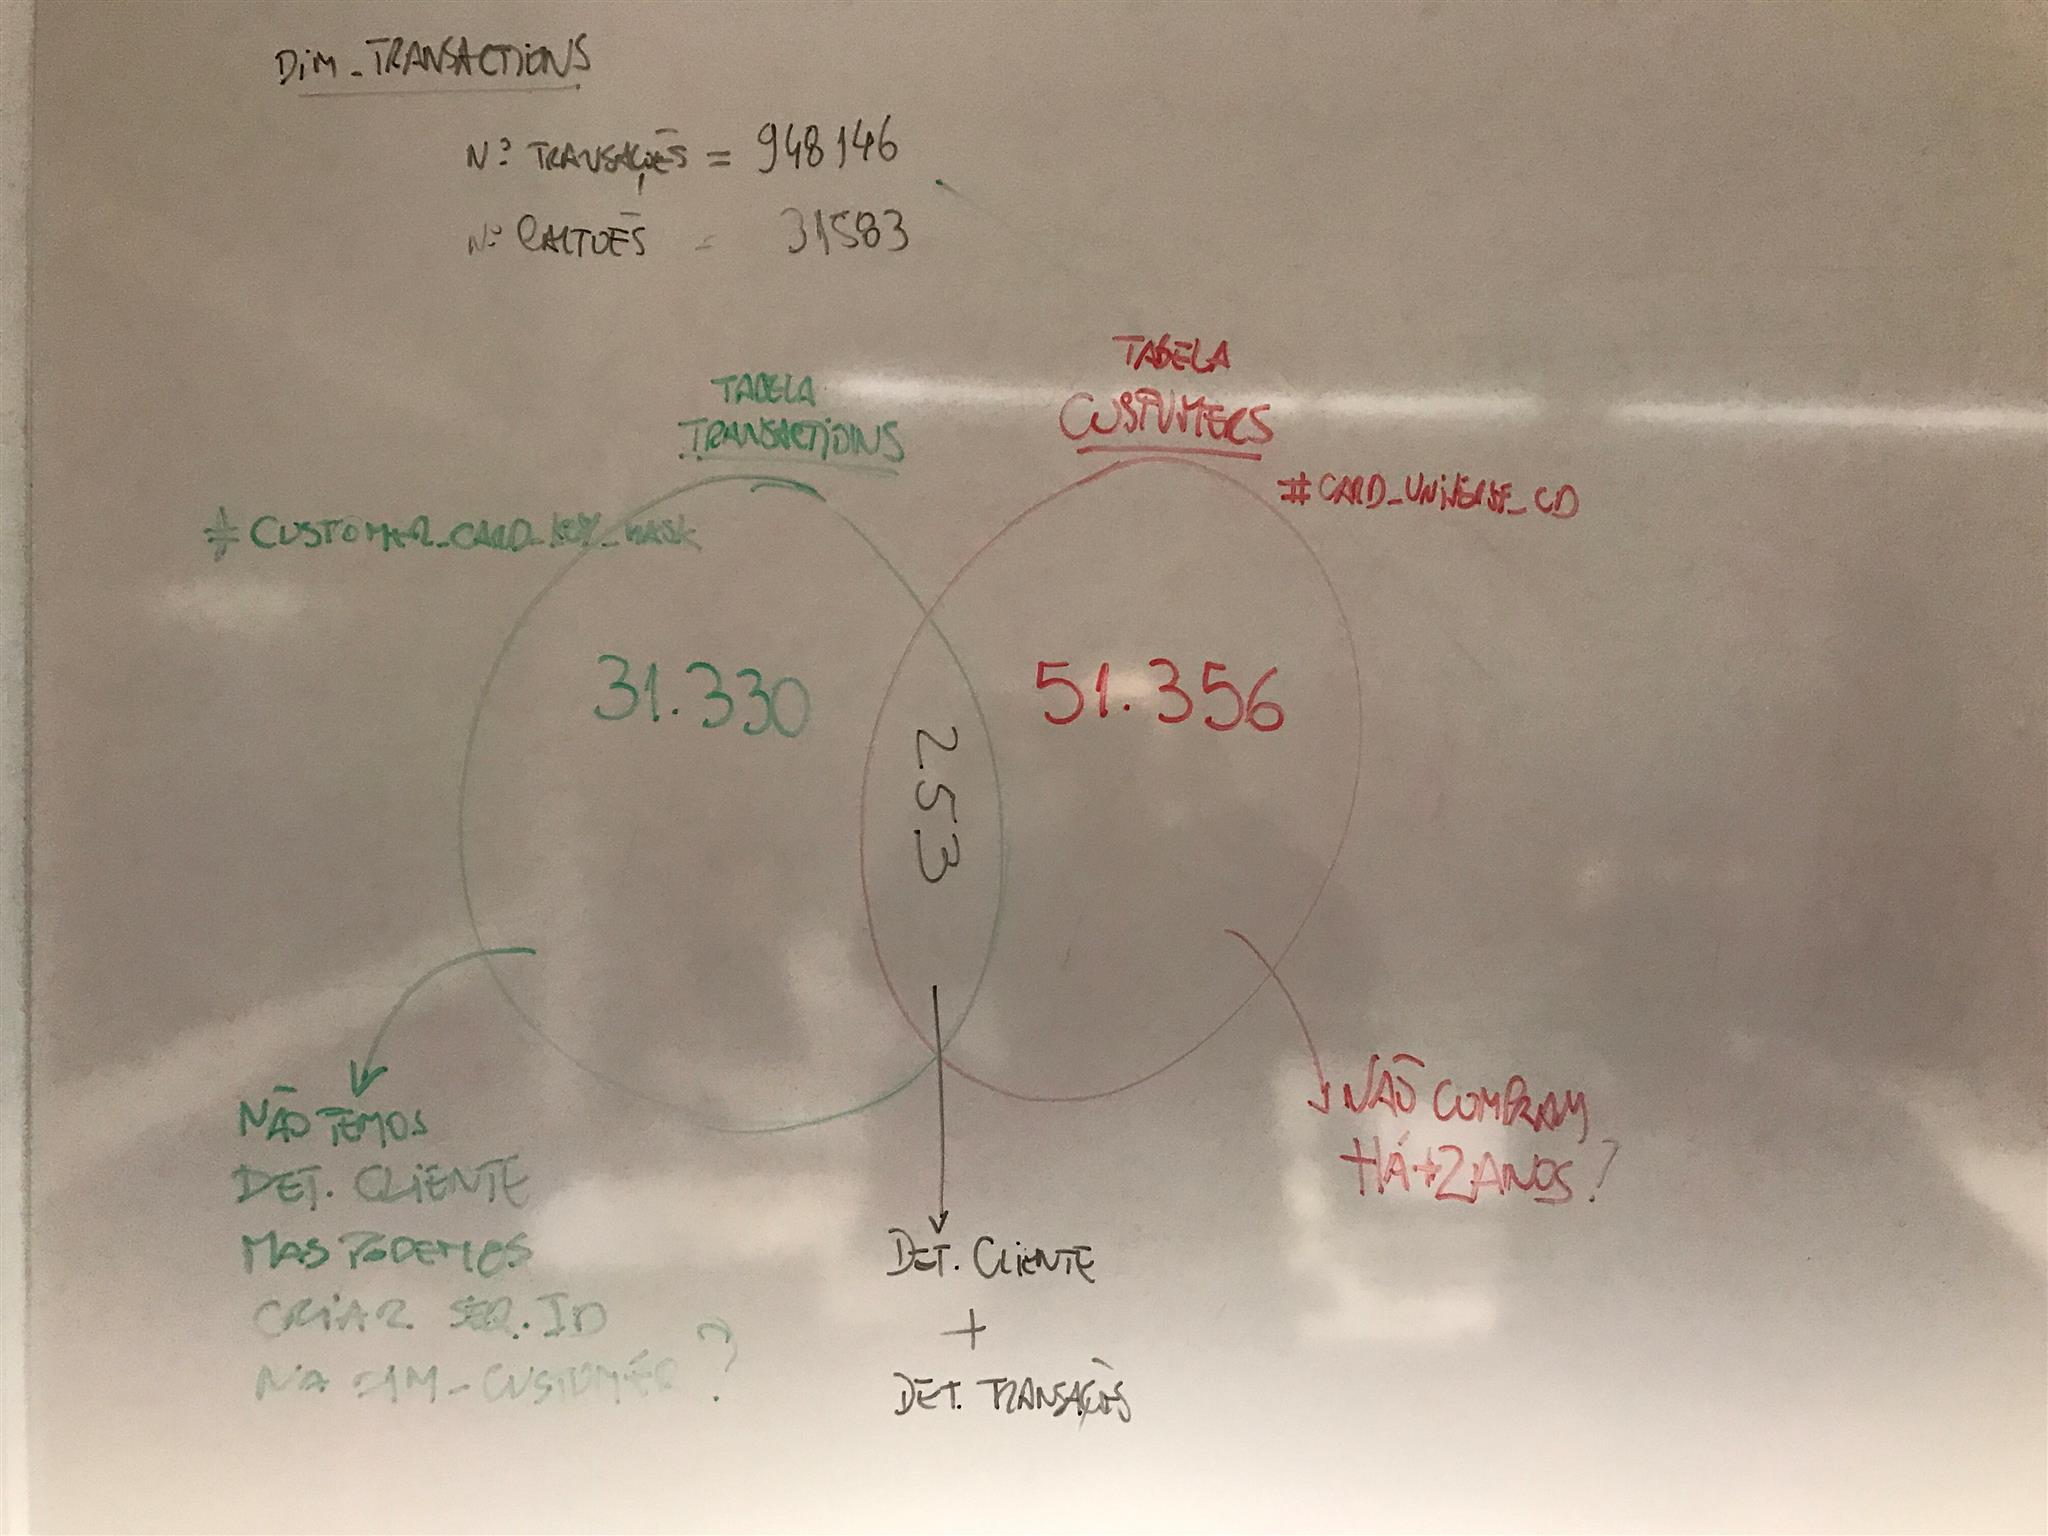 DIM_TRANSACTIONS
Nº TRANSAÇÕES = 948146
Nº CARTÕES = 31583
TABELA
TRANSACTIONS
TABELA
CUSTUMERS
# CUSTOMER_CARD_KEY_MASK
# CARD_UNIVERSE_CD
31.330
253
51.356
NÃO TEMOS
DET. CLIENTE
MAS PODEMOS
CRIAR SEQ. ID
NA DIM_CUSTOMER?
DET. CLIENTE
+
DET. TRANSAÇÕES
NÃO COMPRAM
HÁ +2 ANOS?